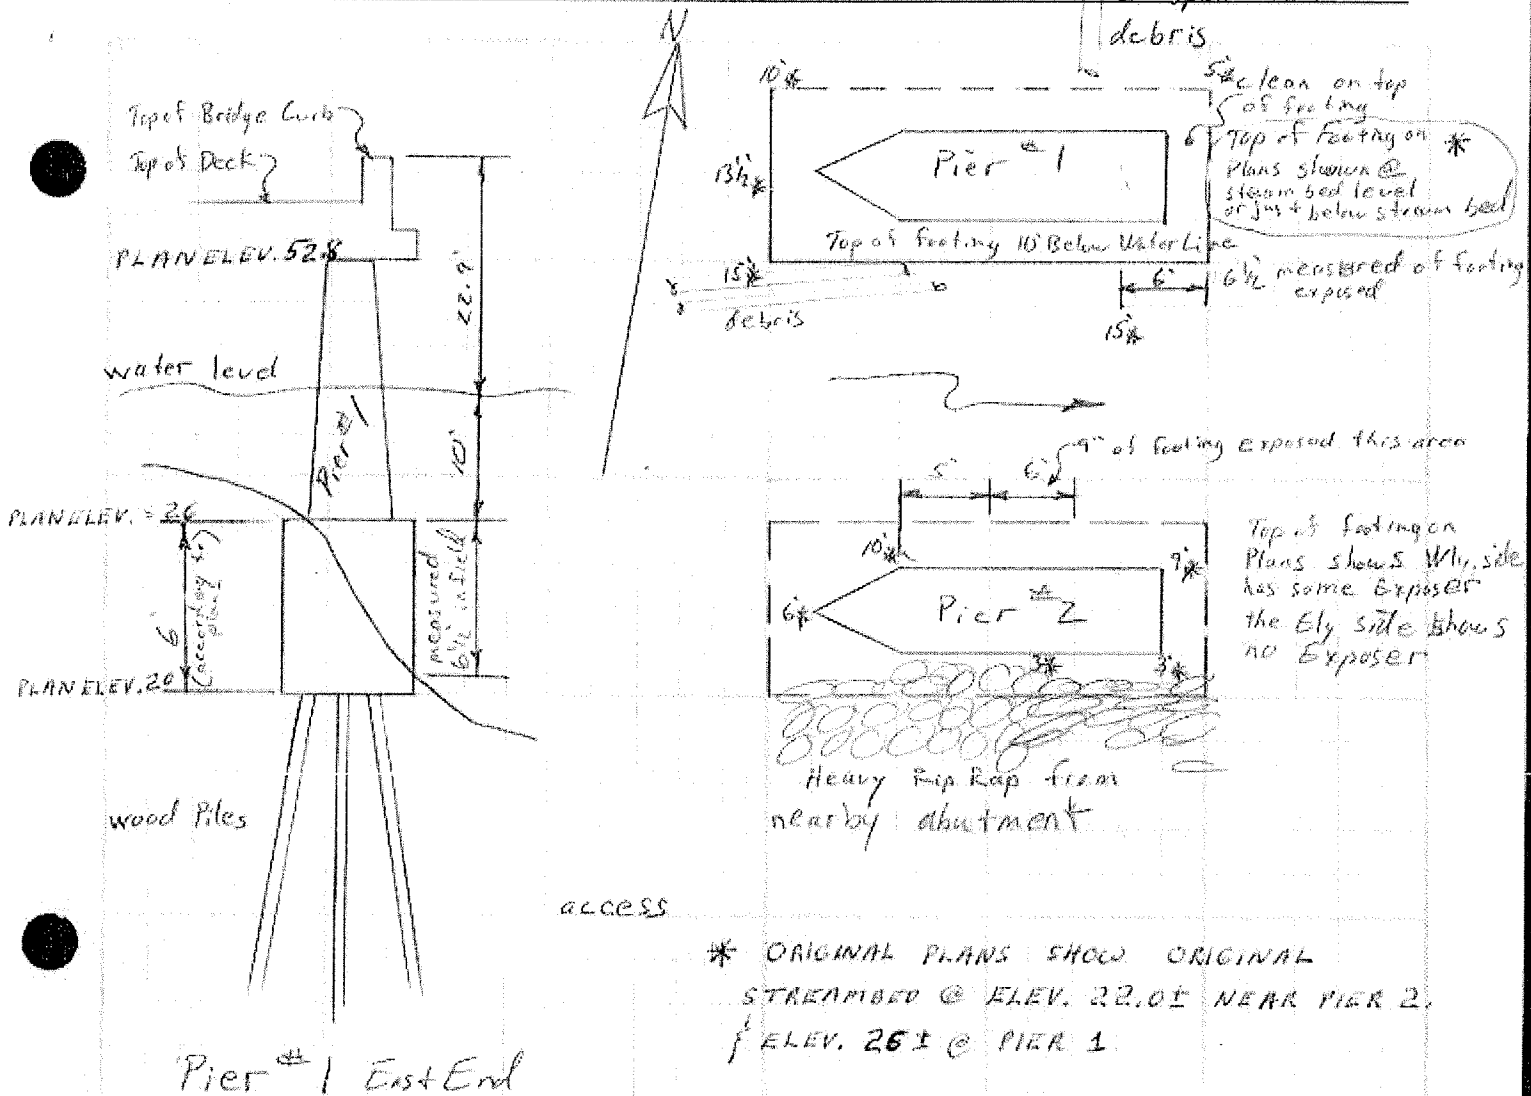 debris
N
Top of Bridge Curb
Top of Deck
PLAN ELEV. 52.8
22.9'
water level
Pier #1
10'
PLAN ELEV. = 26
6'
(according to plans)
measured
6½' in field
PLAN ELEV. 20
wood Piles
Pier #1 East End
10'*
5'*
clean on top
of footing
Top of Footing on *
Plans shown @
steam bed level
or just below stream bed
Pier #1
13½'*
Top of footing 10' Below Water Line
15'*
debris
6'
6½' measured of footing
exposed
15'*
9" of footing exposed this area
5'
6'
10'*
9'*
6'*
Pier #2
3'*
3'*
Top of footing on
Plans shows Wly. side
has some Exposer
the Ely side shows
no Exposer
Heavy Rip Rap from
nearby abutment
access
* ORIGINAL PLANS SHOW ORIGINAL
STREAMBED @ ELEV. 22.0± NEAR PIER 2.
& ELEV. 26± @ PIER 1